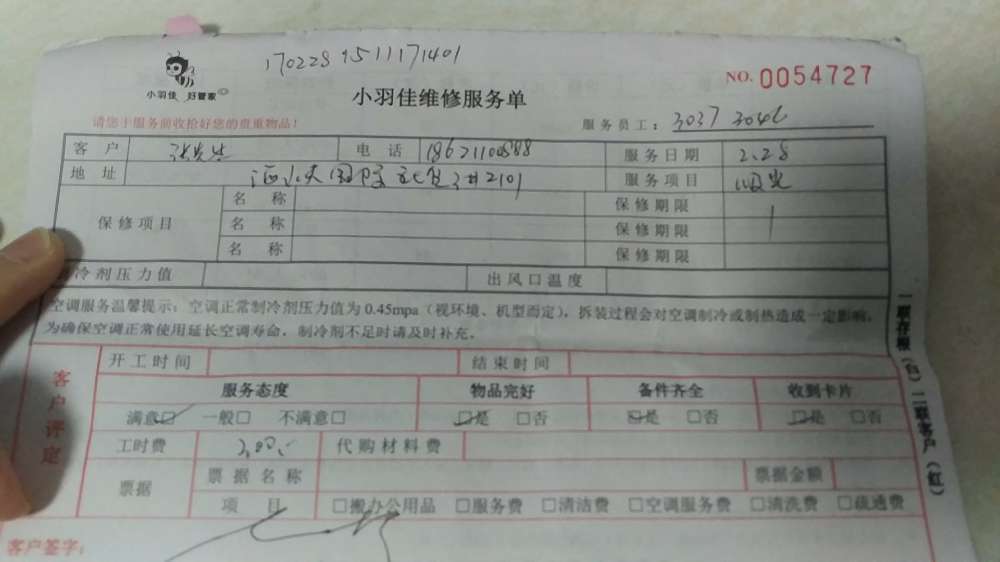 170228 15111171401
小羽佳 好管家
小羽佳维修服务单
NO. 0054727
请您于服务前收拾好您的贵重物品！
服务员工：3037 3046
客户 电话 服务日期 2.28
地址 3#2101 服务项目
保修项目 名称 保修期限
名称 保修期限
名称 保修期限
冷剂压力值 出风口温度
空调服务温馨提示：空调正常制冷剂压力值为 0.45mpa（视环境、机型而定），拆装过程会对空调制冷或制热造成一定影响，
为确保空调正常使用延长空调寿命，制冷剂不足时请及时补充。
客户评定
开工时间 结束时间
服务态度 物品完好 备件齐全 收到卡片
满意☑ 一般□ 不满意□ ☑是 □否 ☑是 □否 ☑是 □否
工时费 代购材料费
票据 票据名称 票据金额
项目 □搬办公用品 □服务费 □清洁费 □空调服务费 □清洗费 □疏通费
客户签字：
一联存根（白）二联客户（红）